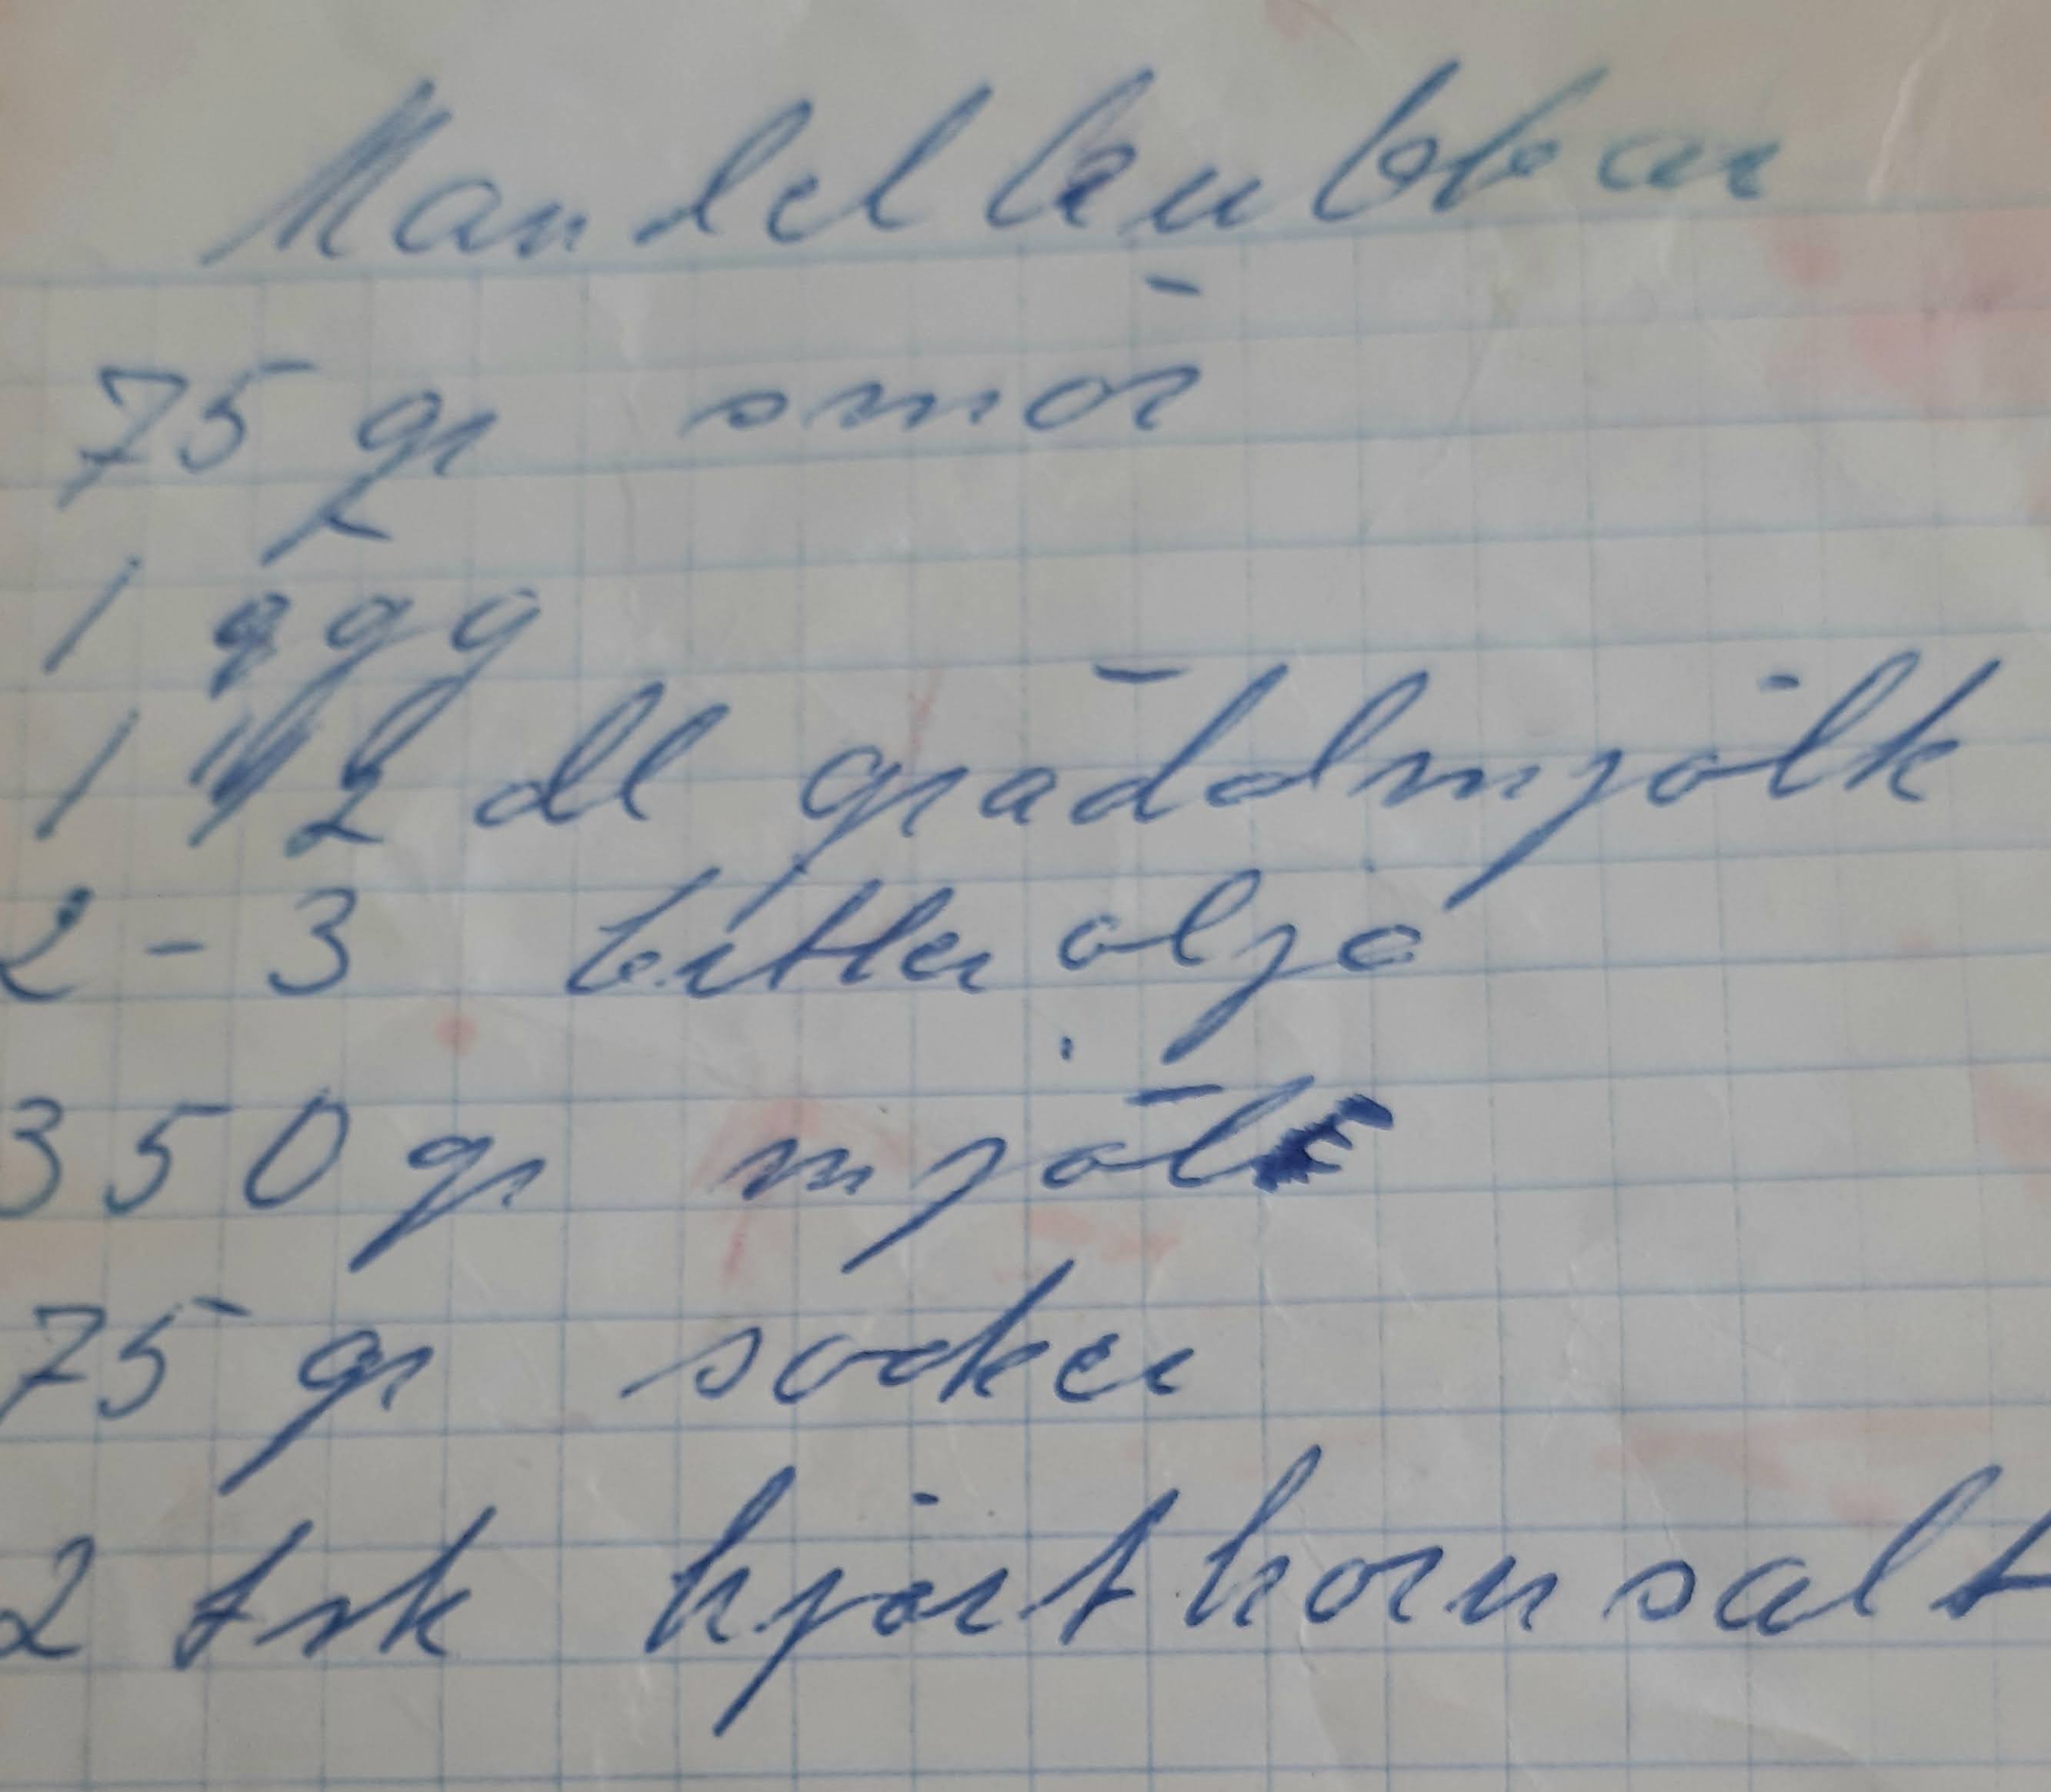 Mandelkubbar
75 gr smör
1 ägg
1 1/2 dl gräddmjölk
2-3 bitterolja
350 gr mjöl
75 gr socker
2 tsk hjorthornsalt